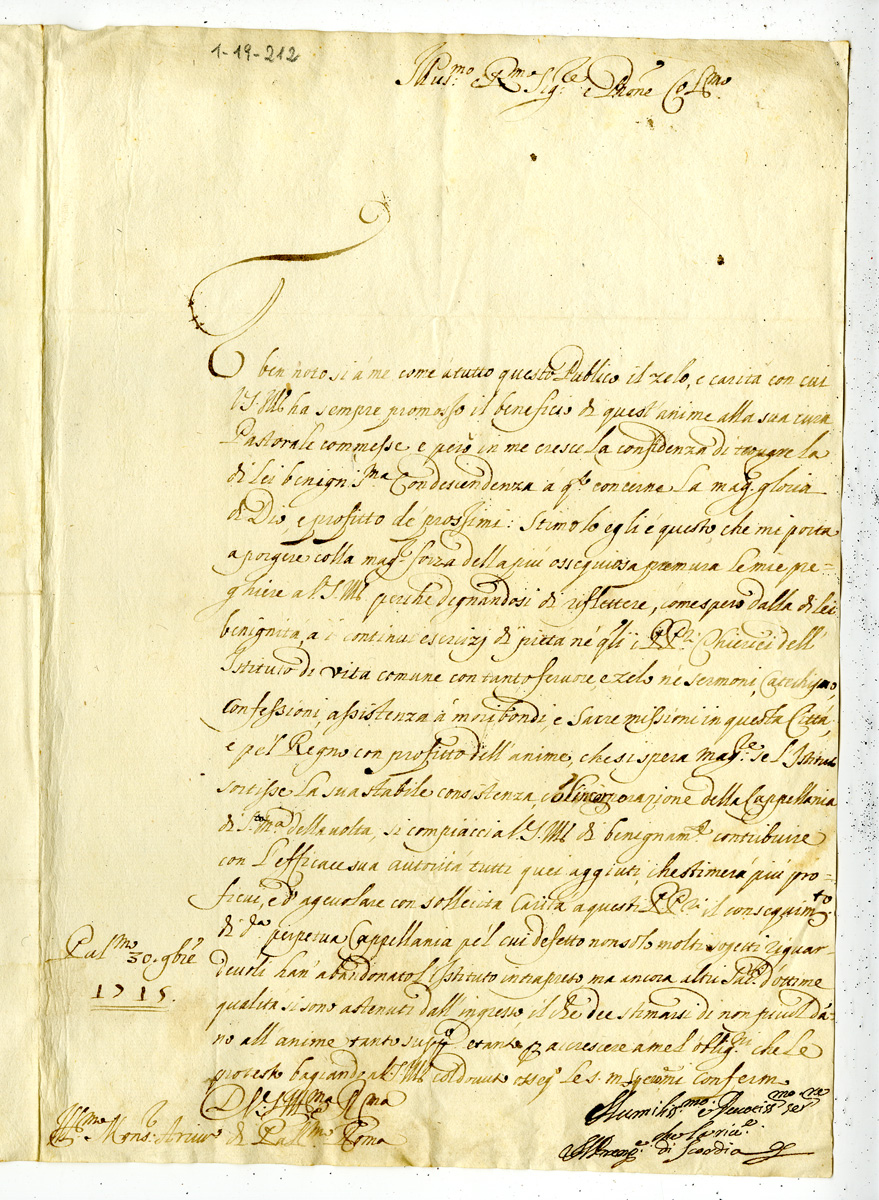 1-19-212
Illus.mo e R.mo Sig.re e P̄rone Col.mo
È ben noto si á me come á tutto questo Publico il zelo, e carità con cui
V.S.Ill ha sempre promosso il beneficio di quest'anime alla sua cura
Pastorale commesse e però in me cresce la confidenza di trovare la
di lei benigniss.ma Condescendenza á q.to concerne la mag.r gloria
di Dio, e profitto de prossimi: Stimolo egli é questo che mi porta
a porgere colla mag.r forza della più ossequiosa premura le mie pre=
ghiere a V.S.Ill perche degnandosi di riflettere, come spero dalla di lei
benignità, a i continui esercizj di pietà né gli PP.ri Chierici dell'
Istituto di vita comune con tanto fervore, e zelo né sermoni, Catechismo,
Confessioni, assistenza á moribondi, e Sacre missioni in questa Città,
e pel Regno con profitto dell'anime, che si spera mag.re se l'Istituto
sortisse la sua stabile consistenza, coll'incorporazione della Cappellania
di S.ta M.a della volta, si compiaccia V.S.Ill di benignam.te contribuire
con l'efficace sua autorità tutti quei aggiuti, che stimerà più pro=
ficui, ed agevolare con sollecita Carità a questi PP.ri il conseguim.to
di d.a perpetua Cappellania pél cui defetto non solo molti sogetti riguar
devoli han' abandonato l'Istituto intrapreso ma ancora altri Sac.ti d'ottime
qualità si sono astenuti dall'ingresso il che dee stimarsi di non picciol dá=
no all'anime tanto sup.o e tanto p accrescere a me l'oblig.ni che le
protesto baciando a V.S.Ill col dovuto osseq.o le s. m
Pal.mo 30. 9bre
1715.
Di V.S.Ill.ma R.ma
Ill.mo Mons.r Arciv.o di Pal.mo Roma
Humilis.mo e devotiss.mo se.re
di Scordia